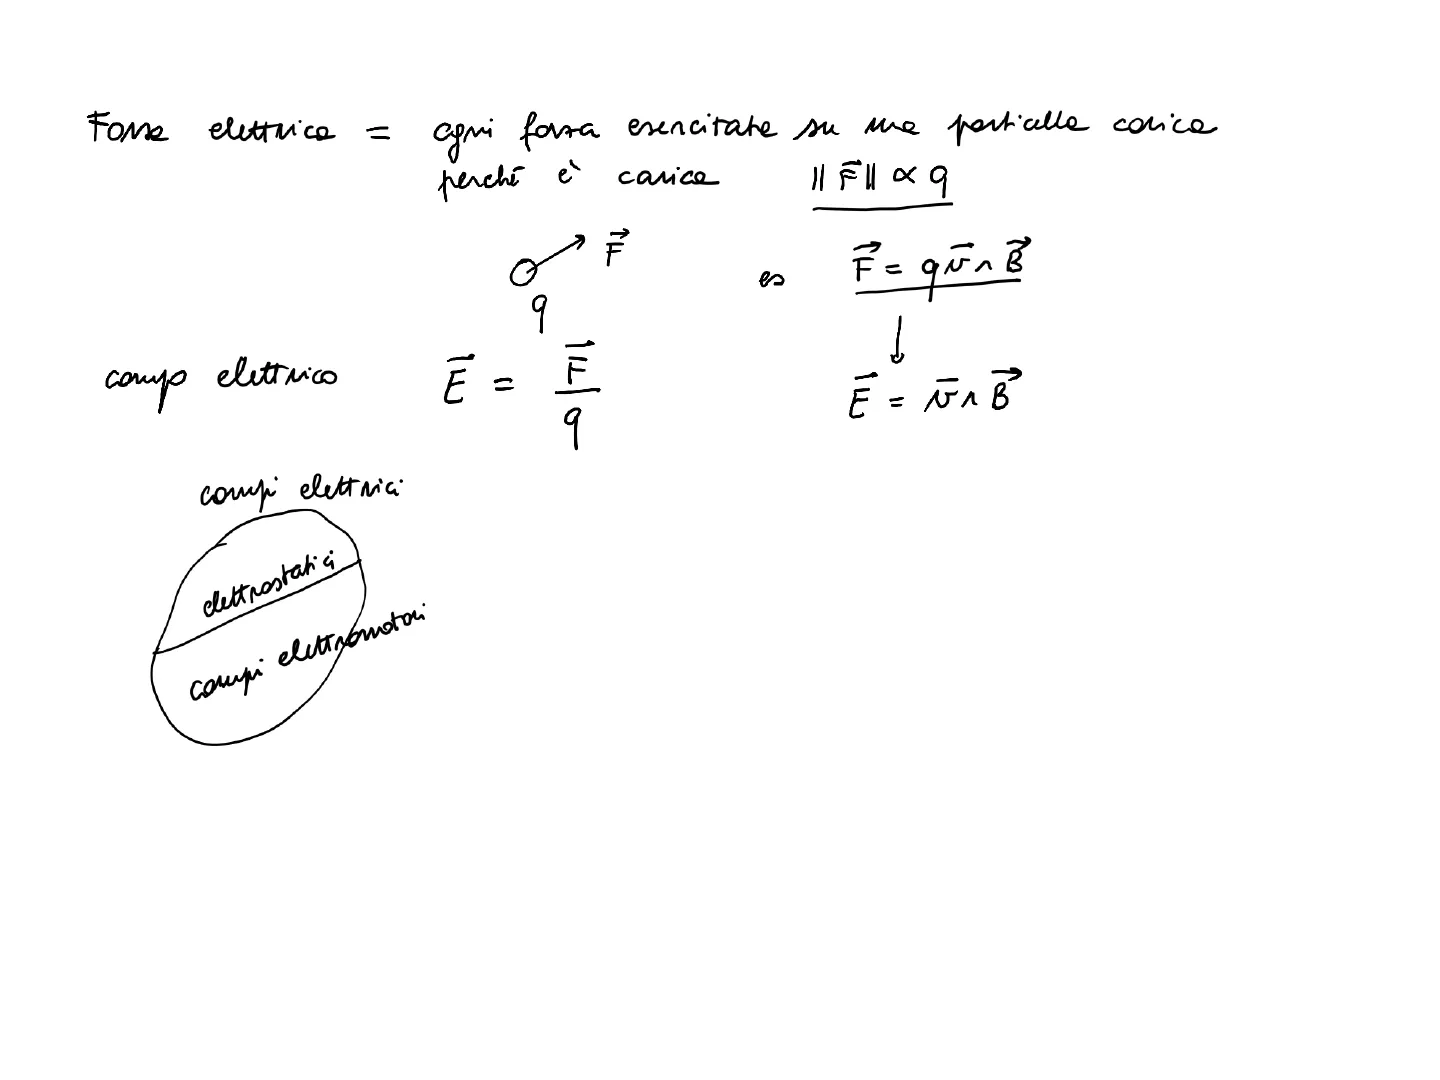 Forza elettrica = ogni forza esercitata su una particella carica
perché è carica ‖F⃗‖ ∝ q
F⃗
q
es F⃗ = q v⃗ ∧ B⃗
campo elettrico E⃗ = F⃗ / q
E⃗ = v⃗ ∧ B⃗
campi elettrici
elettrostatici
campi elettromotori